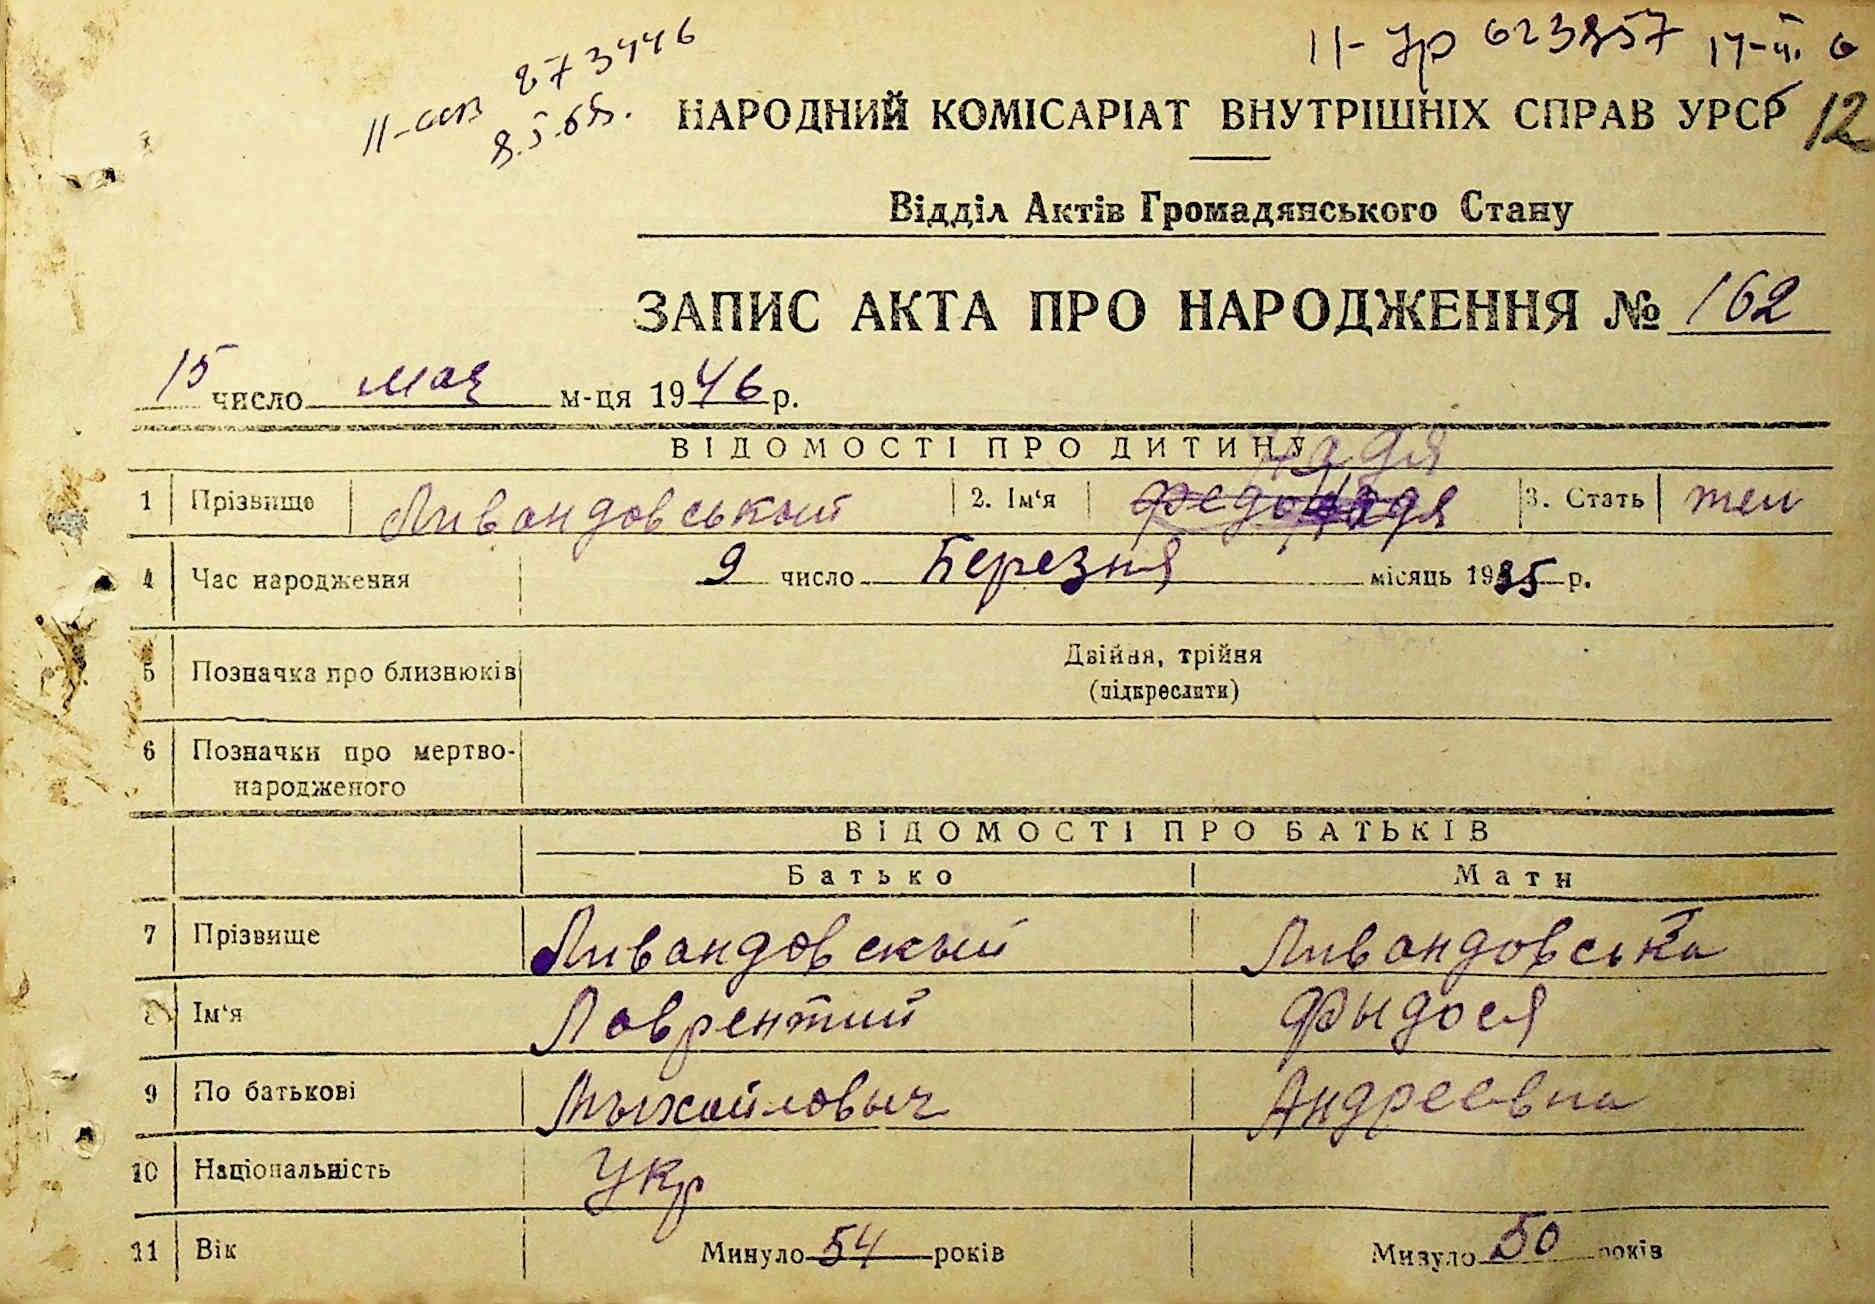 II-ур 623857 17-VI. 6
873446
8.5.65.
НАРОДНИЙ КОМІСАРІАТ ВНУТРІШНІХ СПРАВ УРСР 12
Відділ Актів Громадянського Стану
ЗАПИС АКТА ПРО НАРОДЖЕННЯ № 162
15 число мая м-ця 1946 р.
ВІДОМОСТІ ПРО ДИТИНУ
Надя
1 Прізвище Ливандовський 2. Ім'я Надя 3. Стать жен
4 Час народження 9 число Березня місяць 1935 р.
5 Позначка про близнюків Двійня, трійня
(підкреслити)
6 Позначки про мертво-
народженого
ВІДОМОСТІ ПРО БАТЬКІВ
Батько Мати
7 Прізвище Ливандовскый Ливандовська
8 Ім'я Лаврентий Фыдося
9 По батькові Мыхайловыч Андреевна
10 Національність Укр
11 Вік Минуло 54 років Минуло 50 років